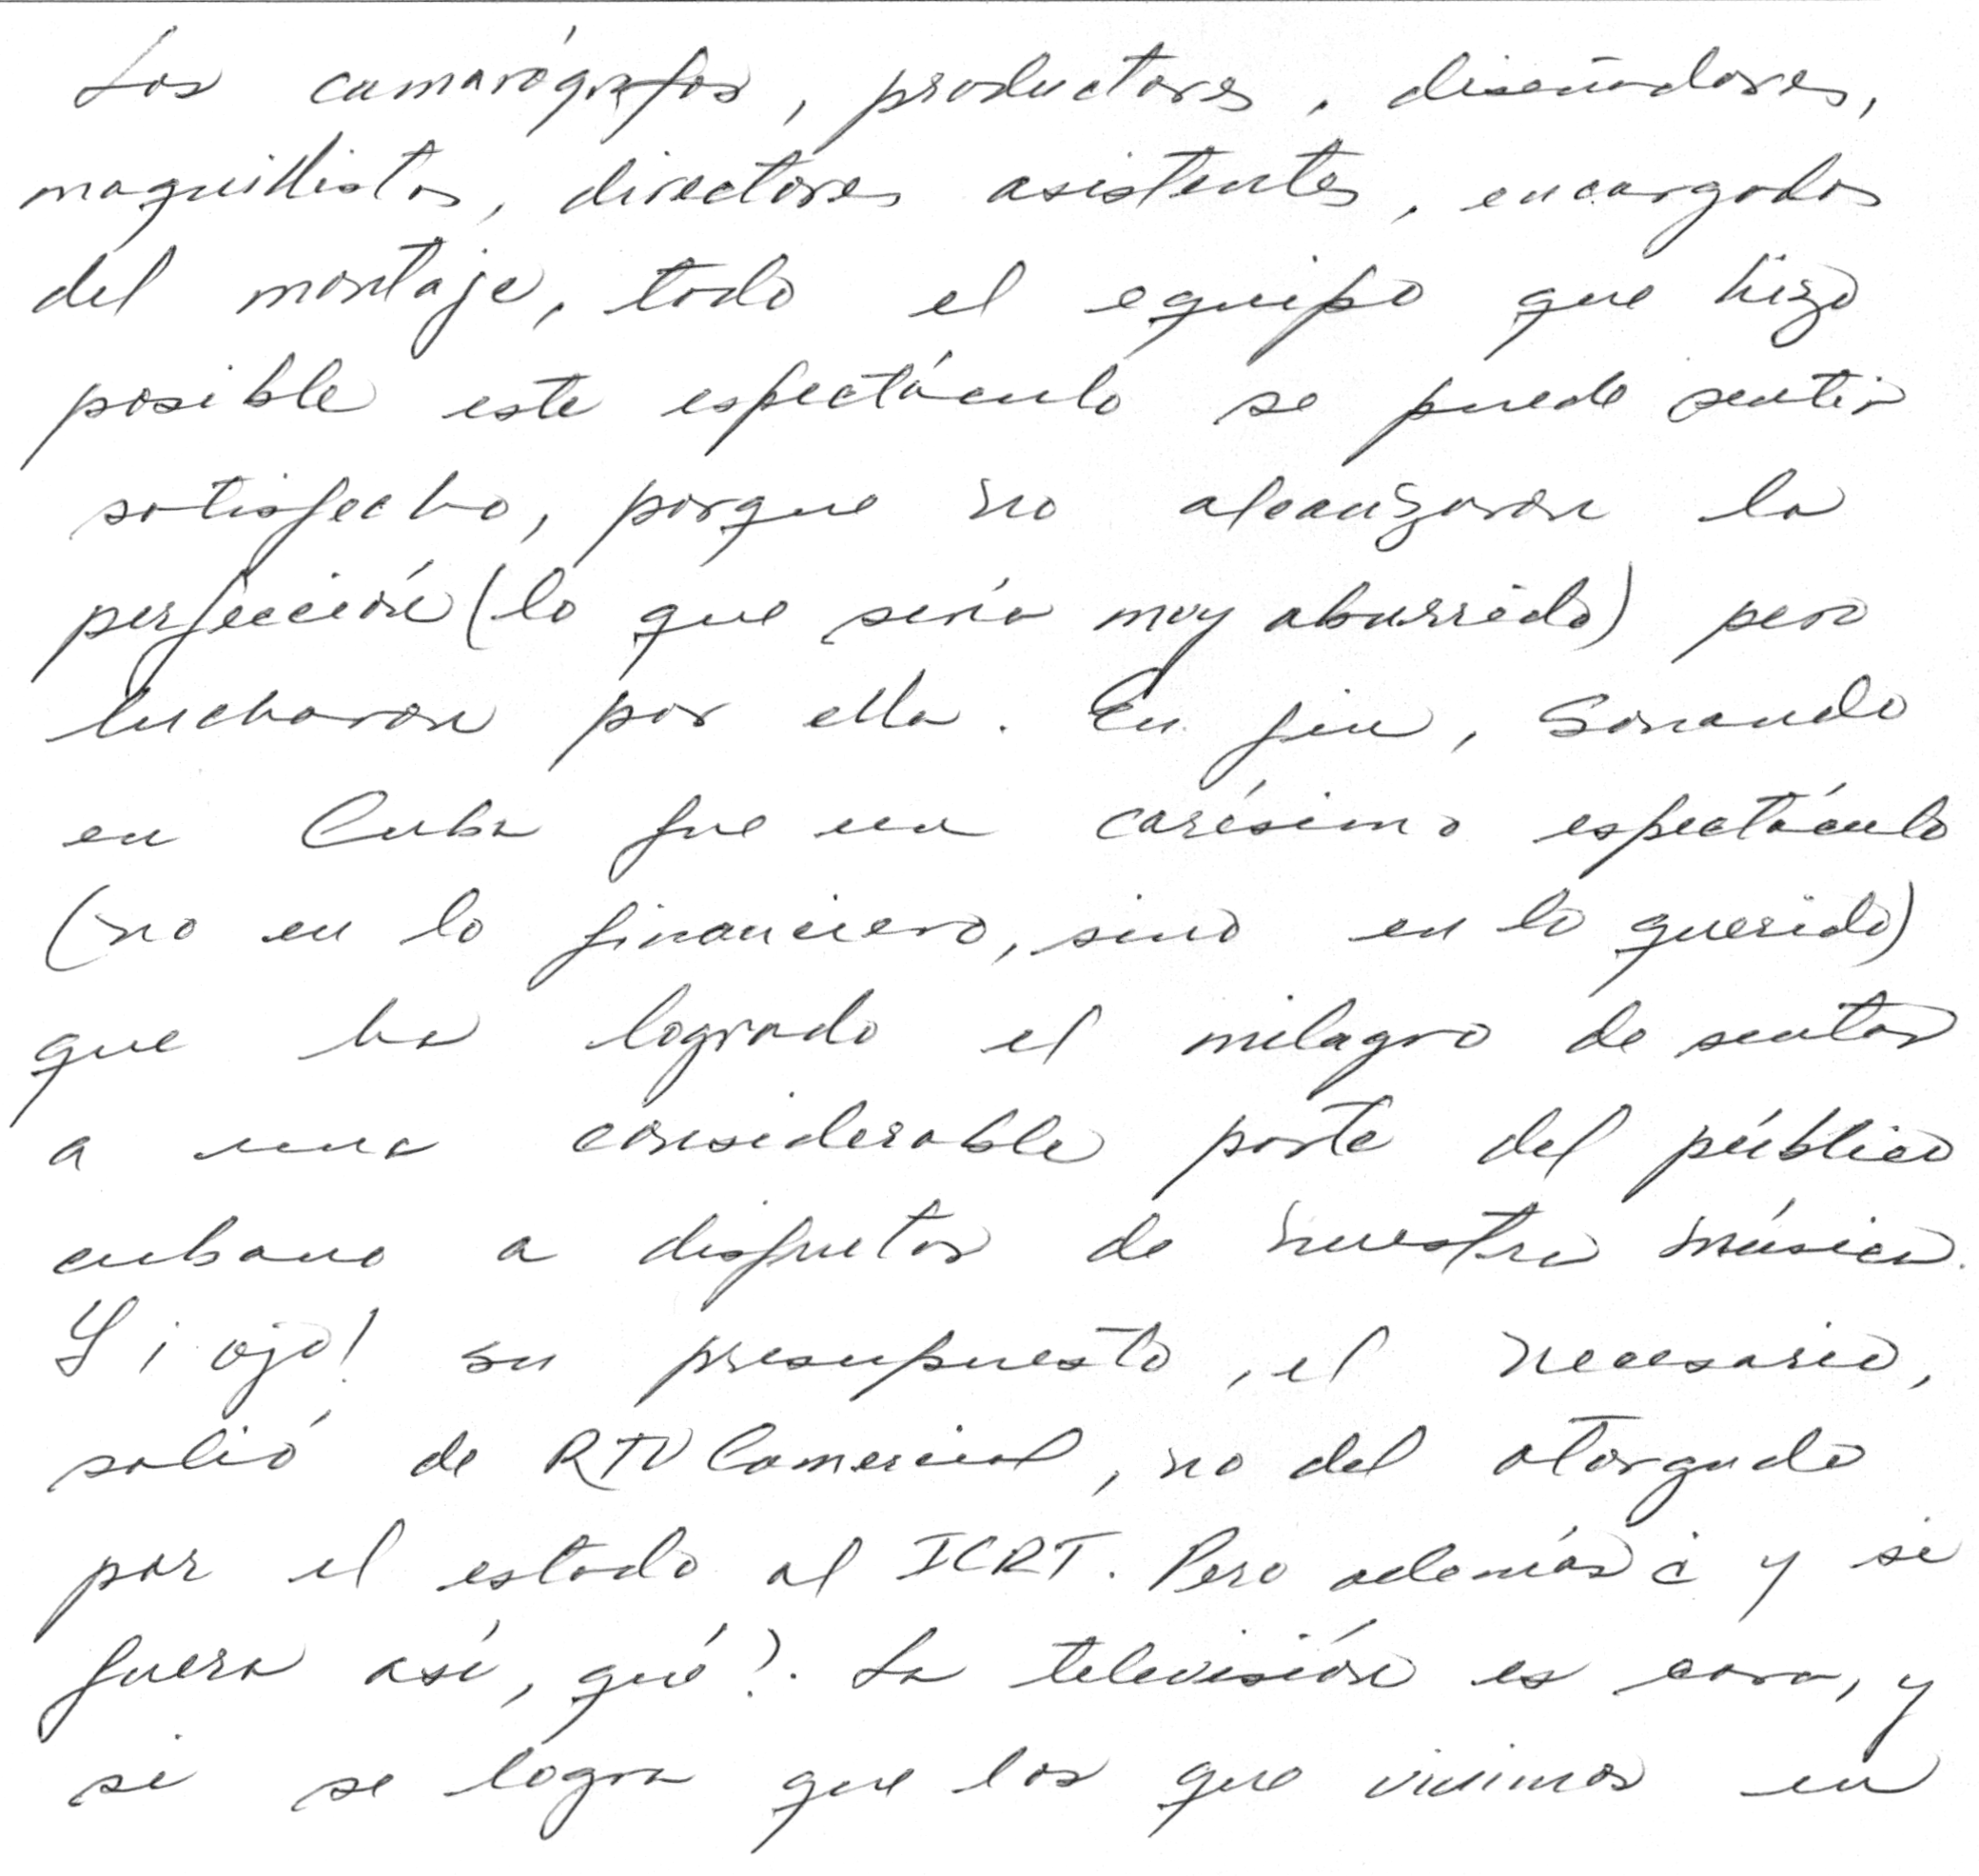 Los camarógrafos, productores, diseñadores,
maquillistas, directores asistentes, encargados
del montaje, todo el equipo que hizo
posible este espectáculo se puede sentir
satisfecho, porque no alcanzaron la
perfección (lo que sería muy aburrido) pero
lucharon por ella. En fin, Sonando
en Cuba fue un carísimo espectáculo
(no en lo financiero, sino en lo querido)
que ha logrado el milagro de sentar
a una considerable parte del público
cubano a disfrutar de nuestra música.
Y ¡ojo! su presupuesto, el necesario,
salió de RTV Comercial, no del otorgado
por el estado al ICRT. Pero además ¿y si
fuera así, qué?. La televisión es cara, y
si se logra que los que vivimos en